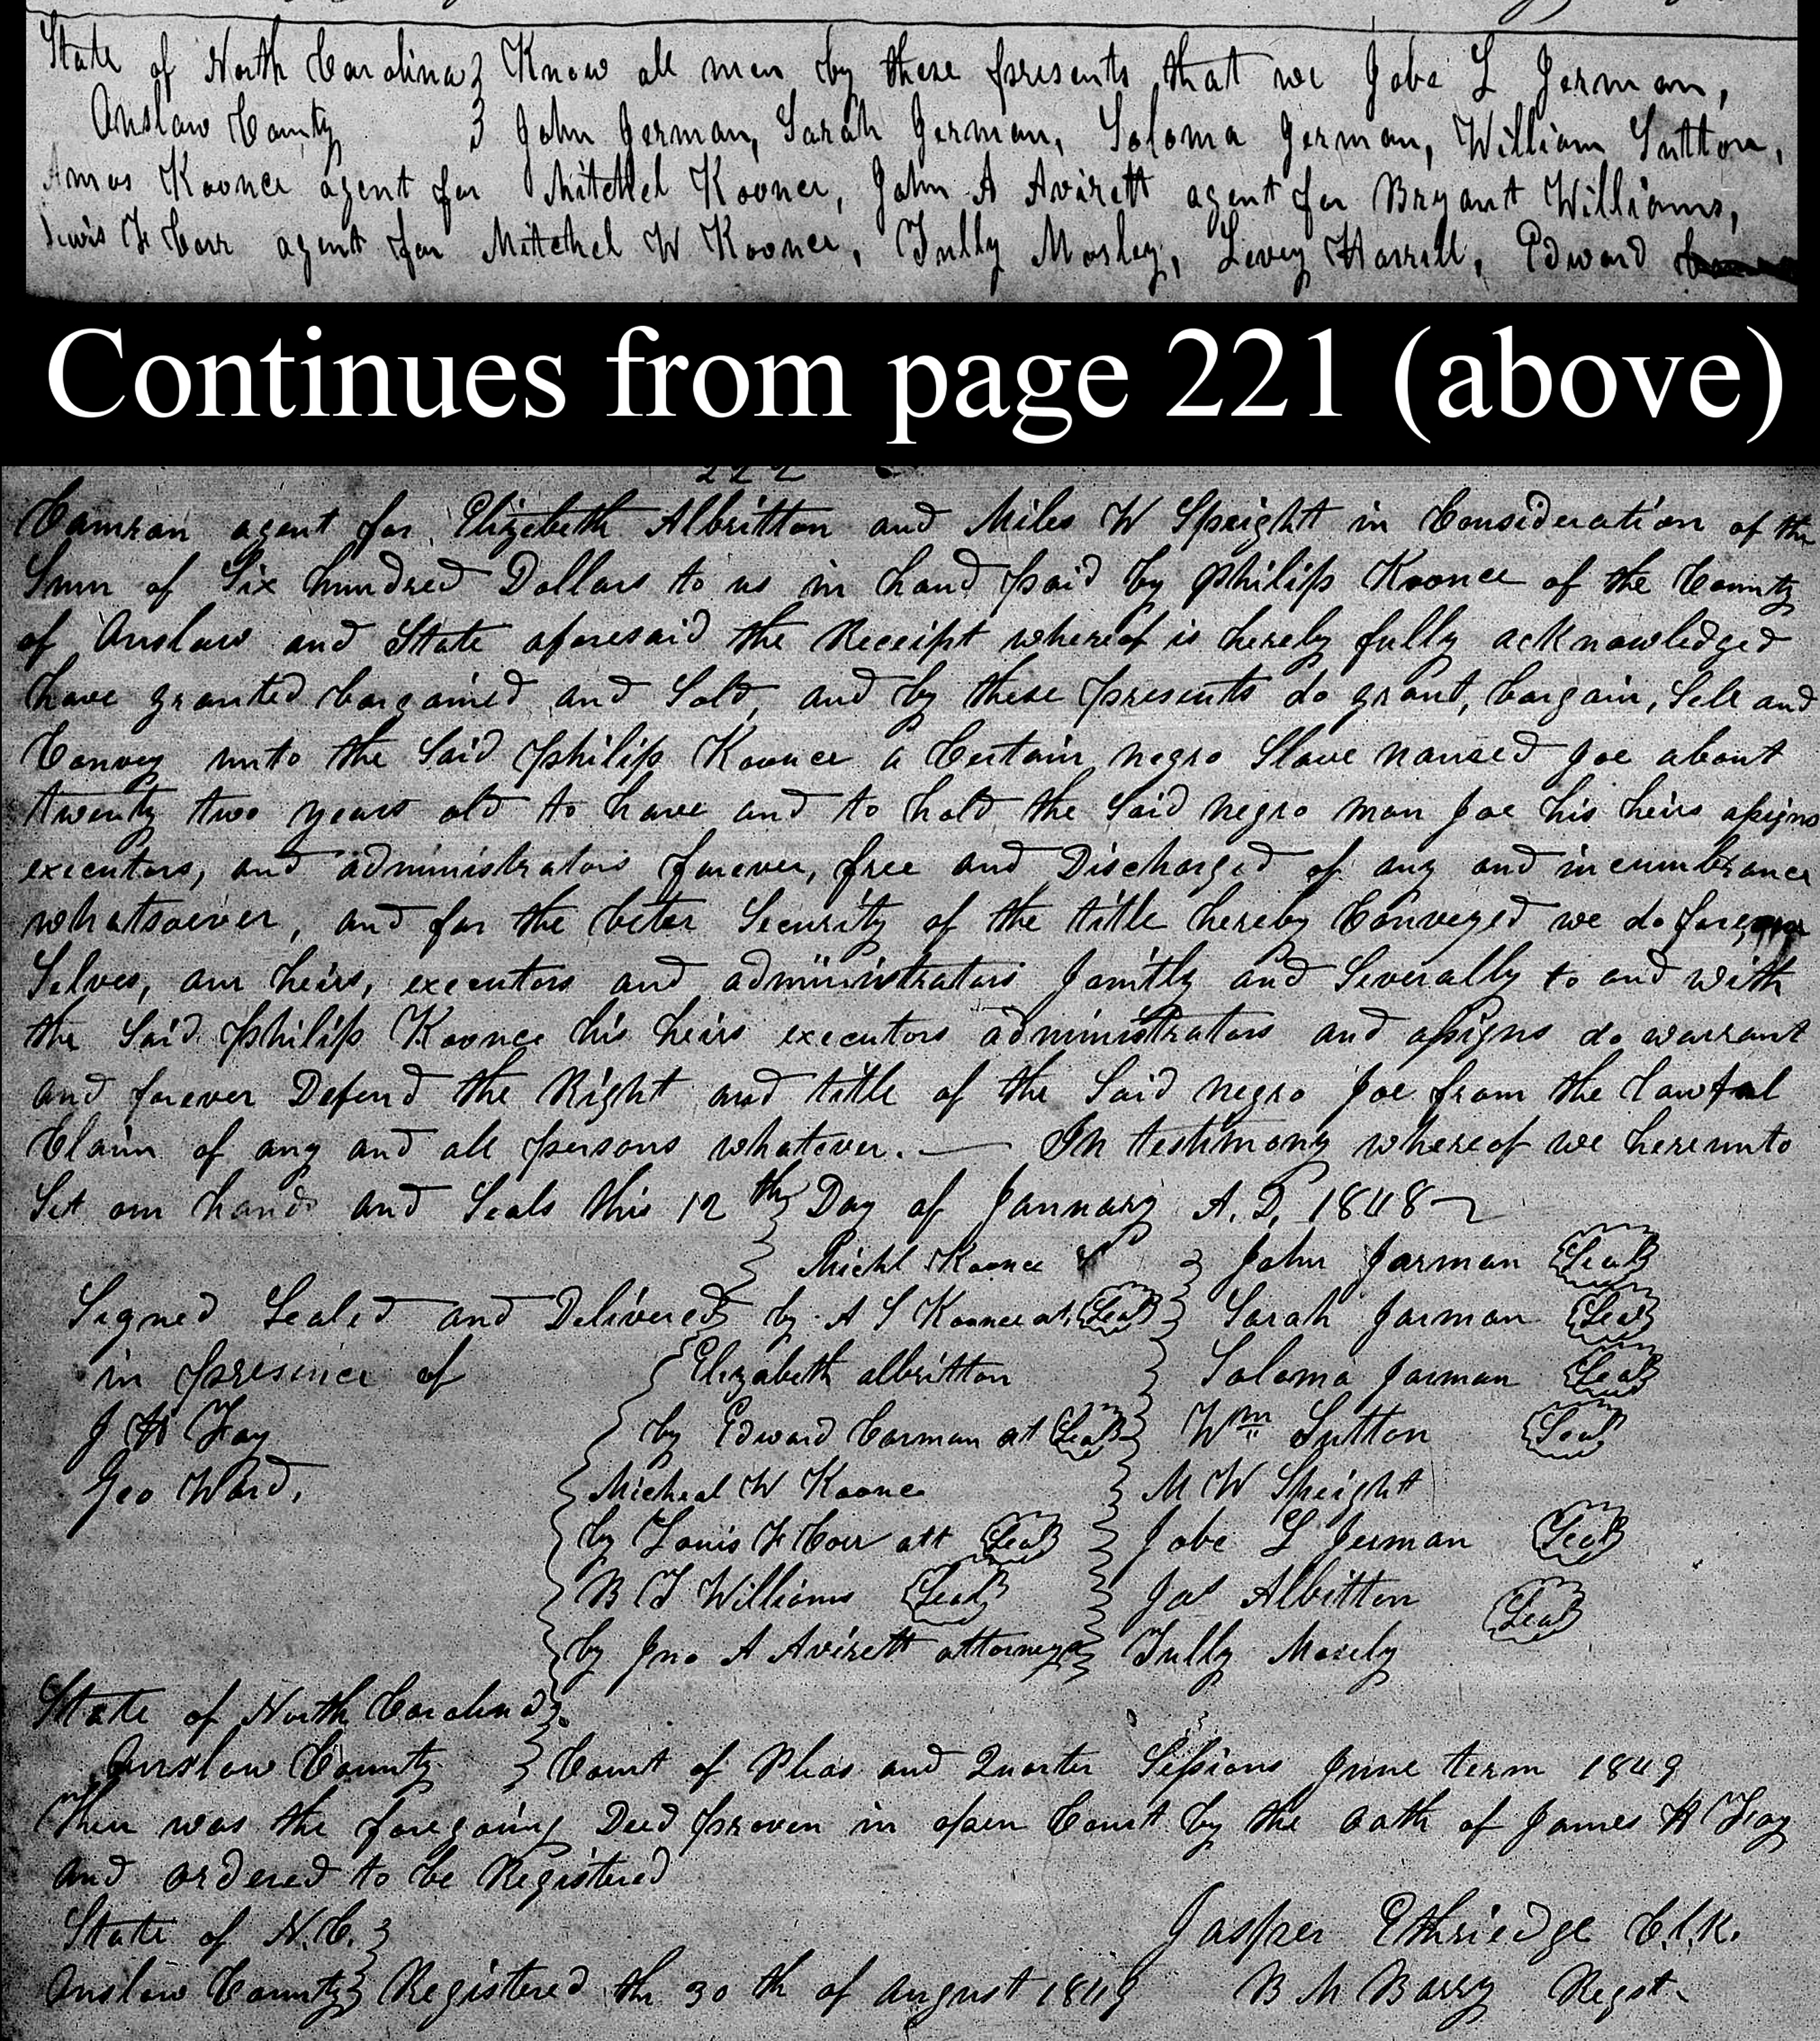 State of North Carolina } Know all men by these presents that we Jobe L Jerman,
Onslow County } John Jerman, Sarah German, Soloma German, William Sutton,
Amos Koonce agent for Mitchel Koonce, John A Averett agent for Bryant Williams,
Lewis F Carr agent for Mitchel W Koonce, Tully Mosley, Levey Harrell, Edward
Continues from page 221 (above)
222
Camran agent for Elizebeth Albritton and Miles W Speight in Consideration of the
Sum of Six hundred Dollars to us in hand paid by Philip Koonce of the County
of Onslow and State aforesaid the Receipt whereof is hereby fully acknowledged
have granted bargained and Sold, and by these presents do grant, bargain, Sell and
Convey unto the Said Philip Koonce a Certain negro Slave named Joe about
twenty two years old to have and to hold the Said negro man Joe his heirs assigns
executors, and administrators forever, free and Discharged of any and incumbrance
whatsoever, and for the beter Security of the title hereby Conveyed we do for our
Selves, our heirs, executors and administrators Jointly and Severally to and with
the Said Philip Koonce his heirs executors administrators and assigns do warrant
and forever Defend the Right and title of the Said negro Joe from the lawful
Claim of any and all persons whatever. — In testimony whereof we hereunto
Set our hands and Seals this 12th Day of January A.D. 1848
Michl Koonce } John Jarman Seal
Signed Sealed and Delivered } by A S Koonce at Seal } Sarah Jarman Seal
in presence of { Elizabeth albritton } Soloma Jarman Seal
J H Foy { by Edward Carman at Seal } Wm Sutton Seal
Geo Ward, { Micheal W Koonce } M W Speight
{ by Louis F Carr att Seal } Jobe L Jerman Seal
{ B F Williams Seal } Jas Albitton Seal
{ by Jno A Averett attorney } Tully Mosely
State of North Carolina }
Onslow County } Court of Pleas and Quarter Sessions June term 1849
Then was the foregoing Deed proven in open Court by the oath of James H Foy
and ordered to be Registered
State of N.C. } Jasper Ethriedge C.l.k.
Onslow County } Registered the 30th of august 1849 B M Barry Regst.